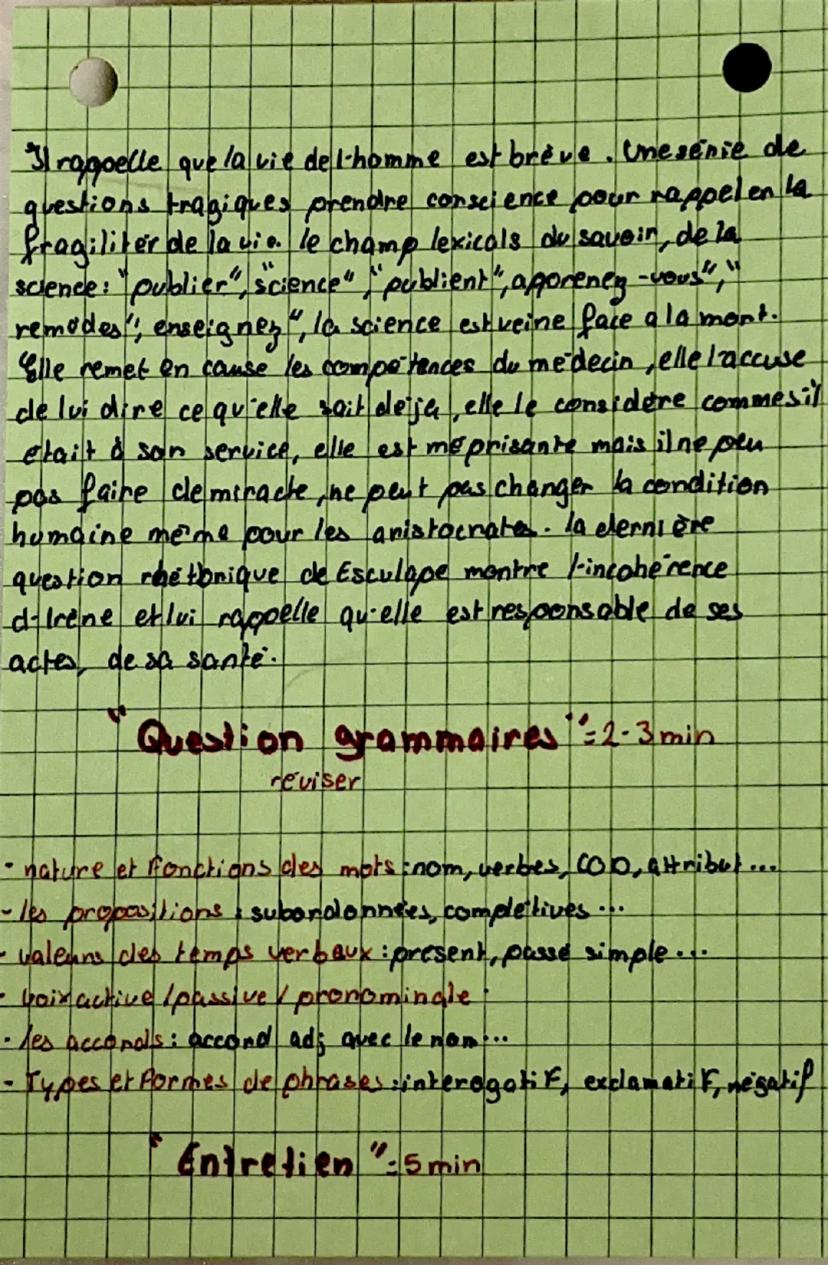 Il rappelle que la vie de l'homme est brève. Une série de
questions tragiques prendre conscience pour rappeler la
fragilitér de la vie. le champ lexicals du savoir, de la
science: "publier", "science", "publient", apprenez-vous", "
remèdes", enseignez", la science est veine face a la mort.
Elle remet en cause les compétences du médecin, elle l'accuse
de lui dire ce qu'elle sait déja, elle le considère comme s'il
était à son service, elle est méprisante mais il ne peu
pas faire de miracle, ne peut pas changer la condition
humaine même pour les aristocrates. la dernière
question rhétorique de Esculape montre l'incohérence
d'Irène et lui rappelle qu'elle est responsable de ses
actes, de sa santé.
"Question grammaires" = 2-3 min
réviser
- nature et fonctions des mots : nom, verbes, COD, attribut...
- les propositions : subordonnées, complétives...
- valeurs des temps verbaux : présent, passé simple...
- voix active / passive / pronominale
- les accords : accord adj avec le nom...
- Types et formes de phrases : interogatif, exclamatif, négatif
"Entretien" = 5 min